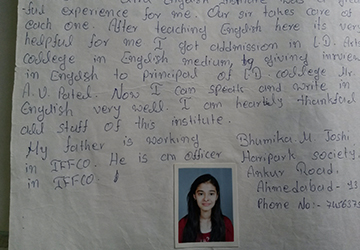 and English institute was
ful experience for me. Our sir takes care of
each one. After teaching English here its very
helpful for me I got addmission in L.D. Art
college in English medium, by giving
in English to principal of L.D. college Mr.
A.U. Patel. Now I can speak and write in
English very well. I am heartly thankful
all staff of this institute.
My father is working
in IFFCO. He is an officer
in IFFCO.
Bhumika M. Joshi
Haripark society.
Ankur Road.
Ahmedabad - 13
Phone No:-